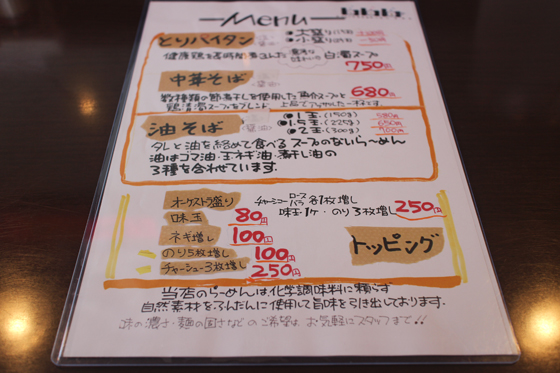 Menu
とりパイタン
●大盛り
●小盛り
健康鶏を 白濁スープ
750円
中華そば
数種類の節煮干しを使用した魚介スープと 680円
鶏清湯スープをブレンド 上品で
油そば
●1玉(150g) 580円
●1.5玉(225g) 650円
●2玉(300g) 700円
タレと油を絡めて食べる スープのないらーめん
油はゴマ油・玉ネギ油・煮干し油の
3種を合わせています.
オーケストラ盛り チャーシュー ロース バラ 各1枚増し
味玉・1ケ・のり3枚増し 250円
味玉 80円
ネギ増し 100円
のり5枚増し 100円
チャーシュー3枚増し 250円
トッピング
当店のらーめんは化学調味料に頼らず
自然素材をふんだんに使用して旨味を引き出しております.
味の濃さ・麺の固さなどのご希望は お気軽にスタッフまで!!